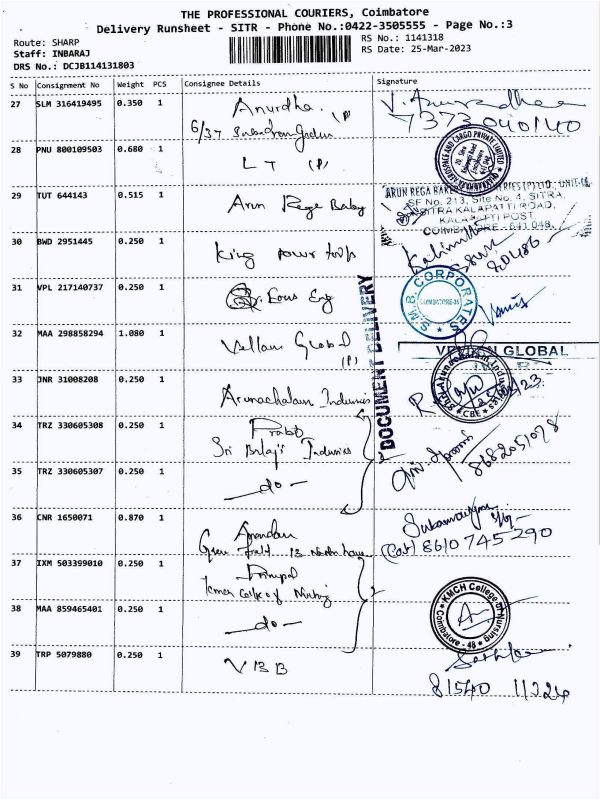 THE PROFESSIONAL COURIERS, Coimbatore
Delivery Runsheet - SITR - Phone No.:0422-3505555 - Page No.:3
Route: SHARP
Staff: INBARAJ
DRS No.: DCJB114131803
RS No.: 1141318
RS Date: 25-Mar-2023
S No Consignment No Weight PCS Consignee Details Signature
27 SLM 316419495 0.350 1 Anurdha. (P)
7373040140
28 PNU 800109503 0.680 1 L T (P)
29 TUT 644143 0.515 1 Arun Rege Baby
SF No. 213, Site No. 4, SITRA,
SITRA KALAPATTI ROAD,
KALAPATTI POST
COIMBATORE - 641 048.
30 BWD 2951445 0.250 1 King power tools
80486
31 VPL 217140737 0.250 1 Eous Eng
S.M.B. CORPORATES
COIMBATORE-35
DOCUMENT DELIVERY
32 MAA 298858294 1.080 1 Vellan Global (P)
GLOBAL
33 JNR 31008208 0.250 1 Arunachalam Industries
CBE
34 TRZ 330605308 0.250 1 Prabt
Sri Balaji Industries
8682051078
35 TRZ 330605307 0.250 1 -do-
36 CNR 1650071 0.870 1 Anandan
8610745290
37 IXM 503399010 0.250 1 Principal
38 MAA 859465401 0.250 1 -do-
KMCH College of Nursing
Coimbatore - 48
39 TRP 5079880 0.250 1 V B B
81540 11324